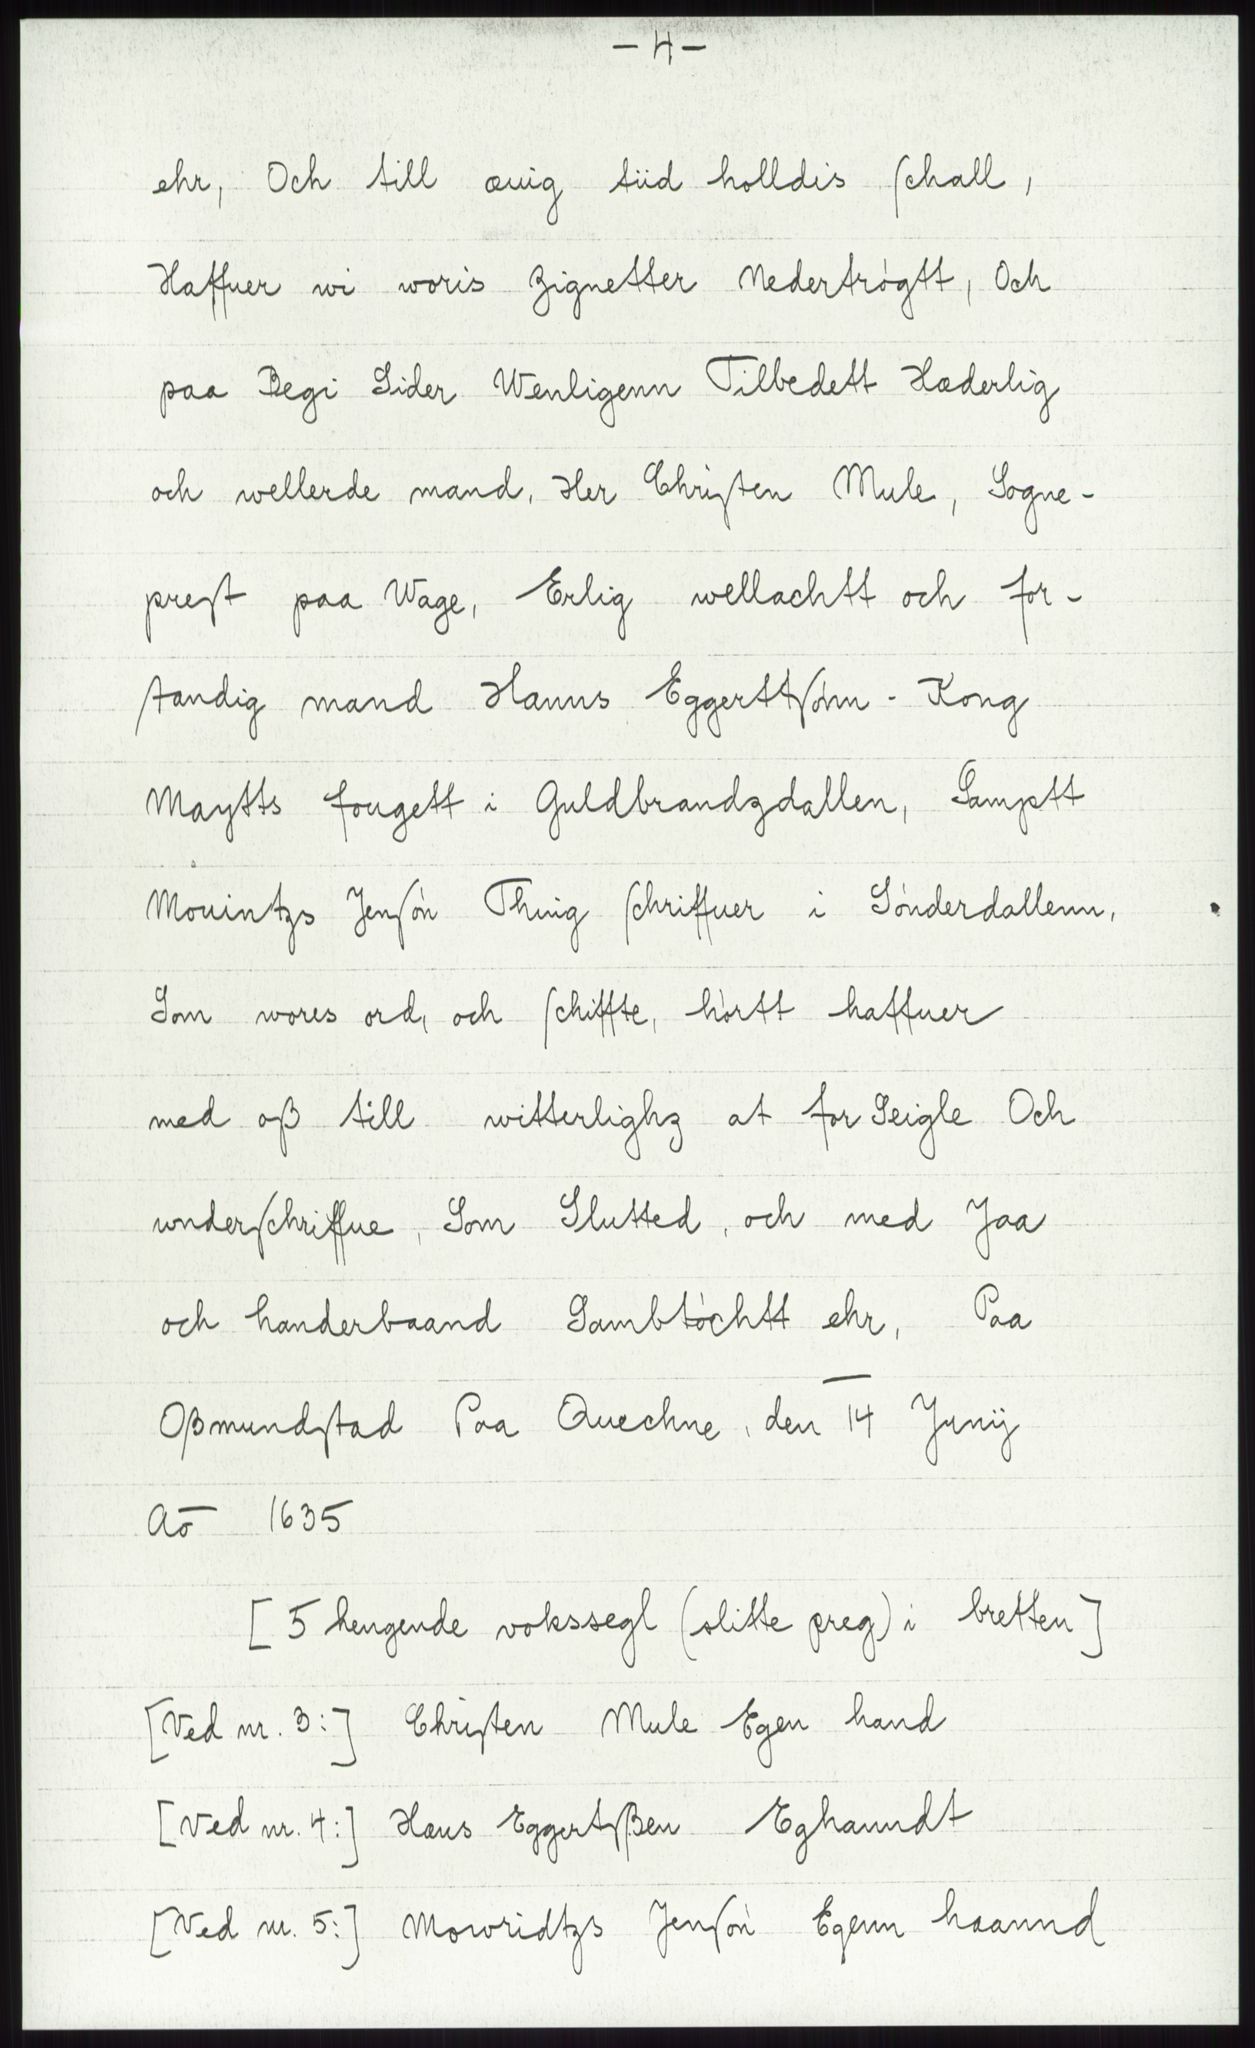 - 4 -
ehr, Och till æuig tiid holldis ſchall,
Haffuer wi woris Zignetter Nedertrógtt, Och
paa Begi Sider Wenligenn Tilbedett Hæderlig
och wellerde mand, Her Chriſten Mule, Sogne-
preſt paa Wage, Erlig wellachtt och for-
ſtandig mand Hanns Eggerttſónn - Kong
Maytts fougett i Guldbrandzdallen, Samptt
Mouintzs Jenſón Thing ſchriffuer i Sónderdallenn,
Som wores ord, och ſchiffte, hórtt haffuer
med oß till witterlighz at for Seigle Och
underſchriffue, Som Slutted, och med Jaa
och handerbaand Sambtóchtt ehr, Paa
Oßmundſtad Paa Quechne, den 14 Junij
Aō 1635
[5 hengende vokssegl (slitte preg) i bretten]
[Ved nr. 3:] Chriſten Mule Egen hand
[Ved nr. 4:] Hans Eggertſßen Eghanndt
[Ved nr. 5:] Mowridtzs Jenſón Egenn haannd